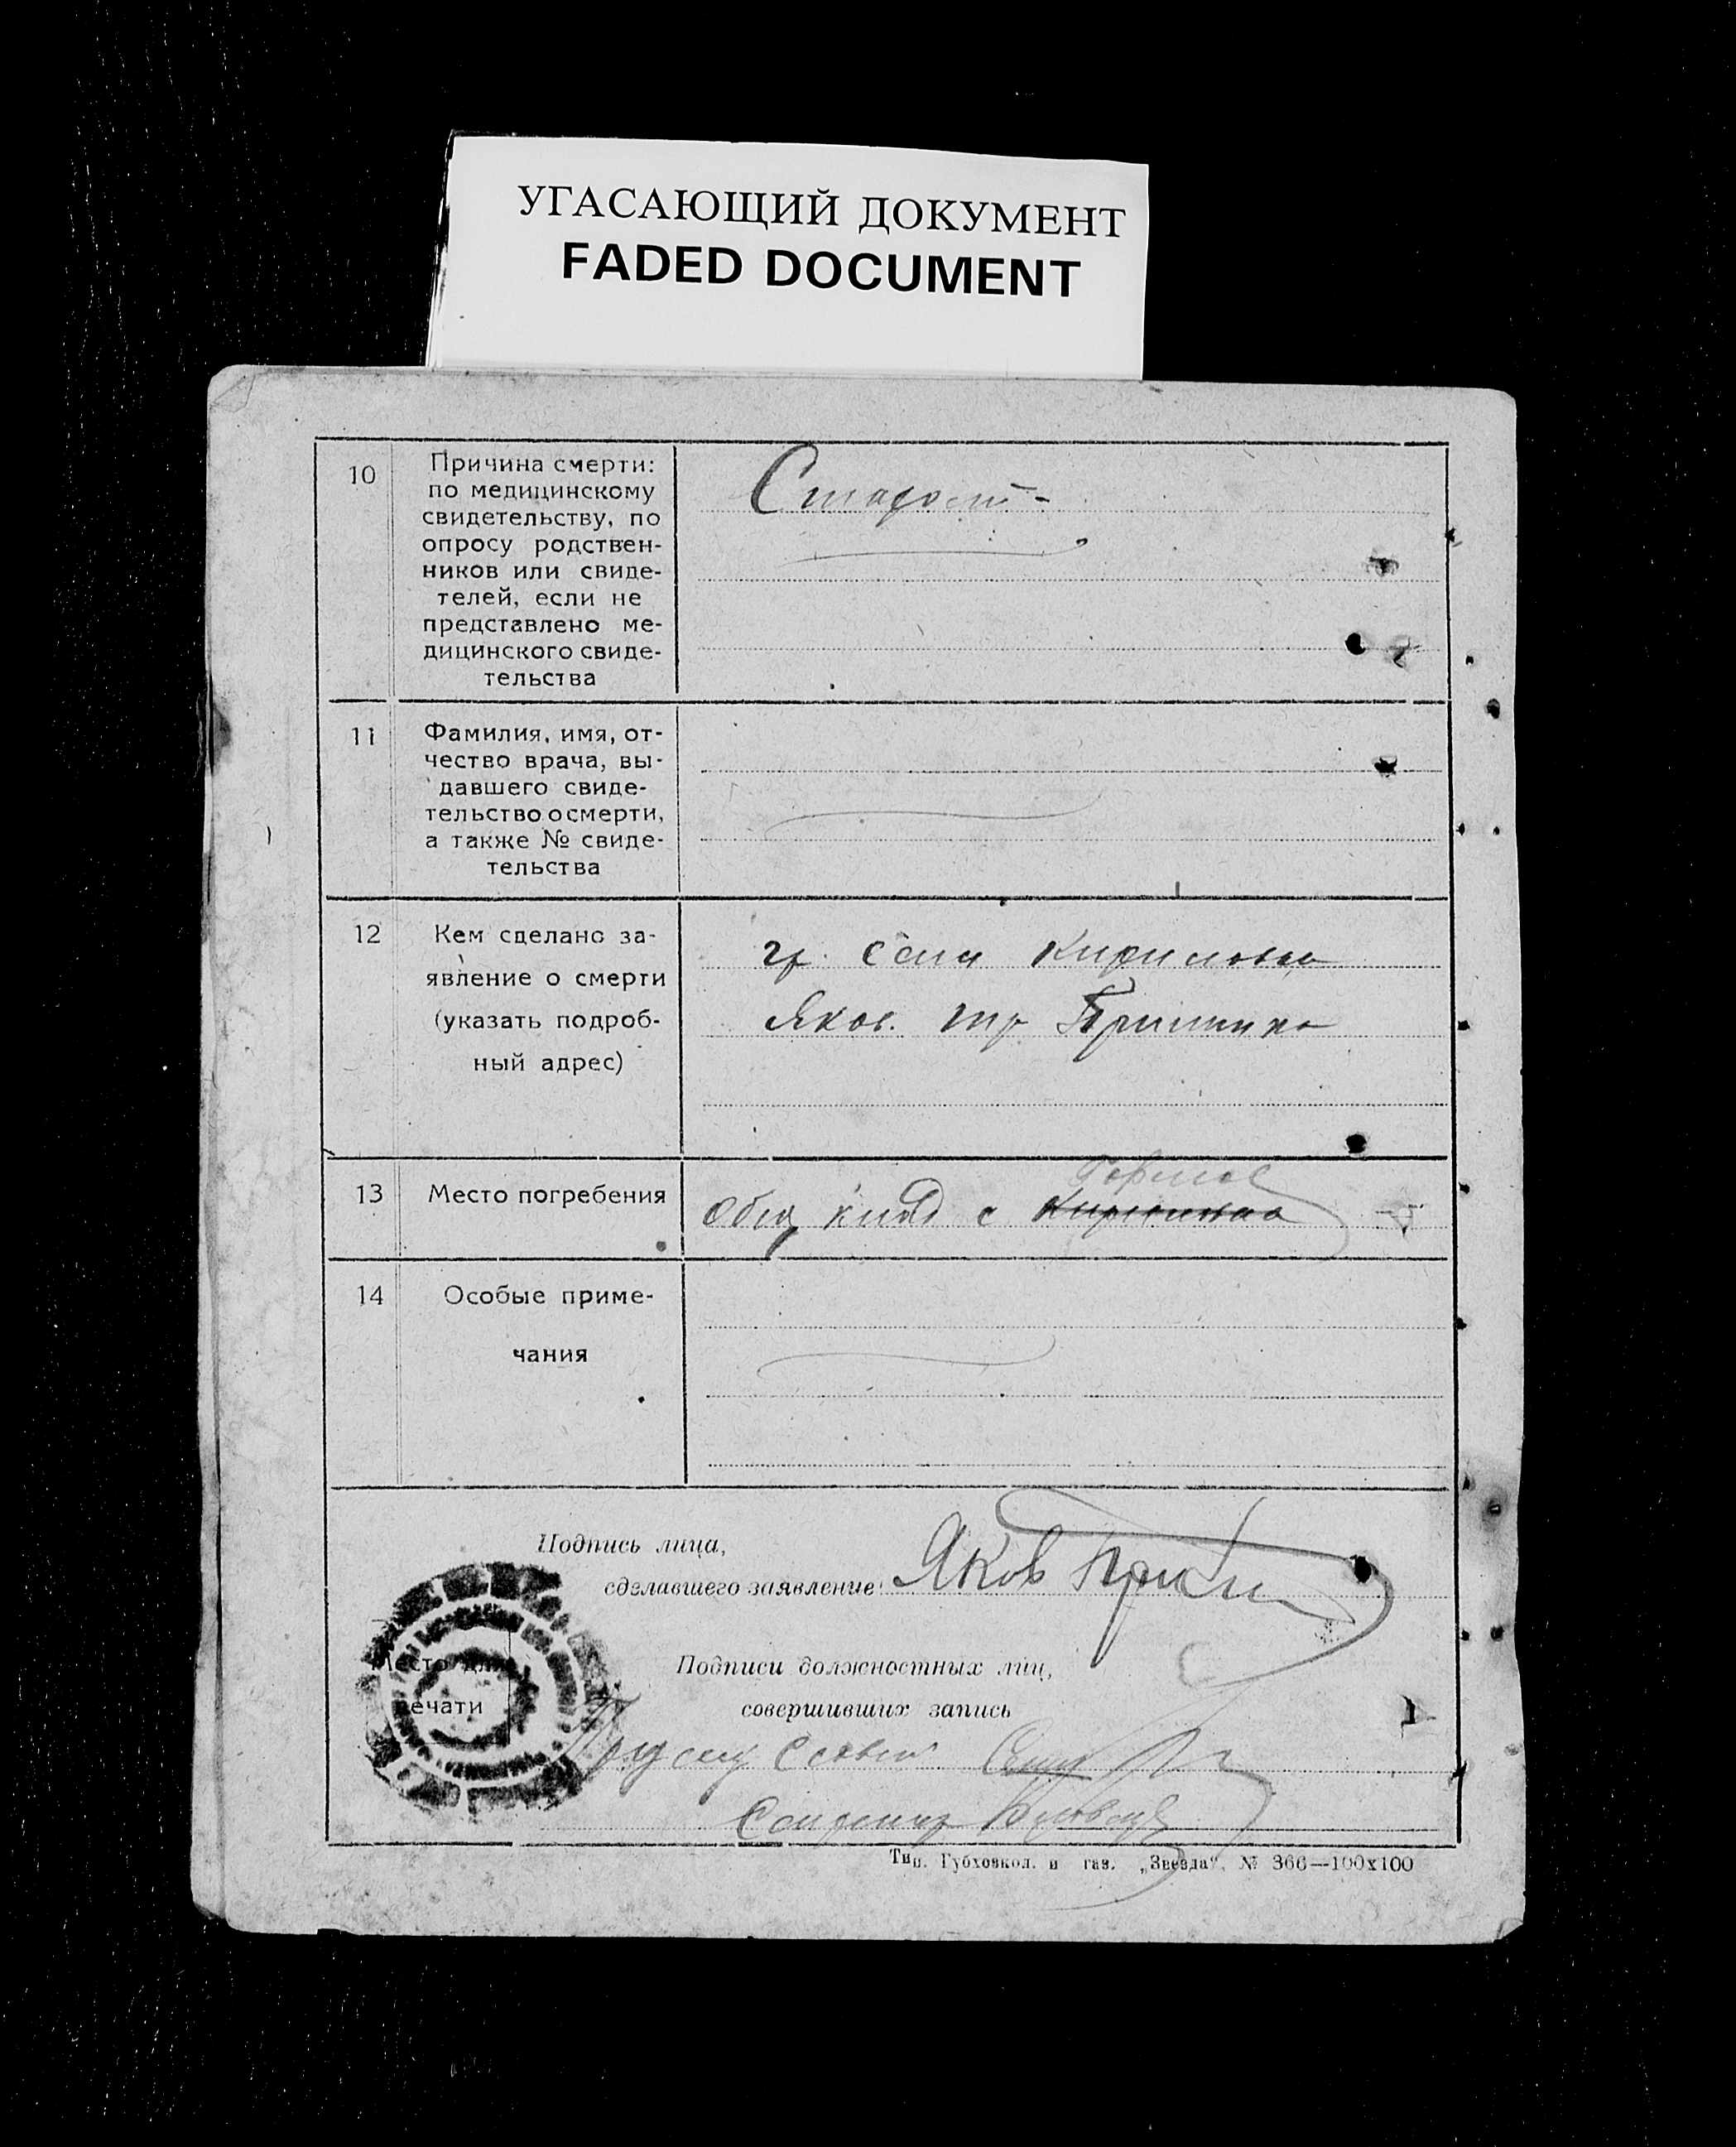 УГАСАЮЩИЙ ДОКУМЕНТ
FADED DOCUMENT
10
Причина смерти:
по медицинскому
свидетельству, по
опросу родствен-
ников или свиде-
телей, если не
представлено ме-
дицинского свиде-
тельства
Старост-
11
Фамилия, имя, от-
чество врача, вы-
давшего свиде-
тельство о смерти,
а также № свиде-
тельства
12
Кем сделано за-
явление о смерти
(указать подроб-
ный адрес)
гр. села
Яков.
13
Место погребения
Общ кладб с
14
Особые приме-
чания
Подпись лица,
сделавшего заявление:
Яков
Место для
печати
Подписи должностных лиц,
совершивших запись
Секретар
Тип. Губховкол. и газ. „Звезда“, № 366—100х100